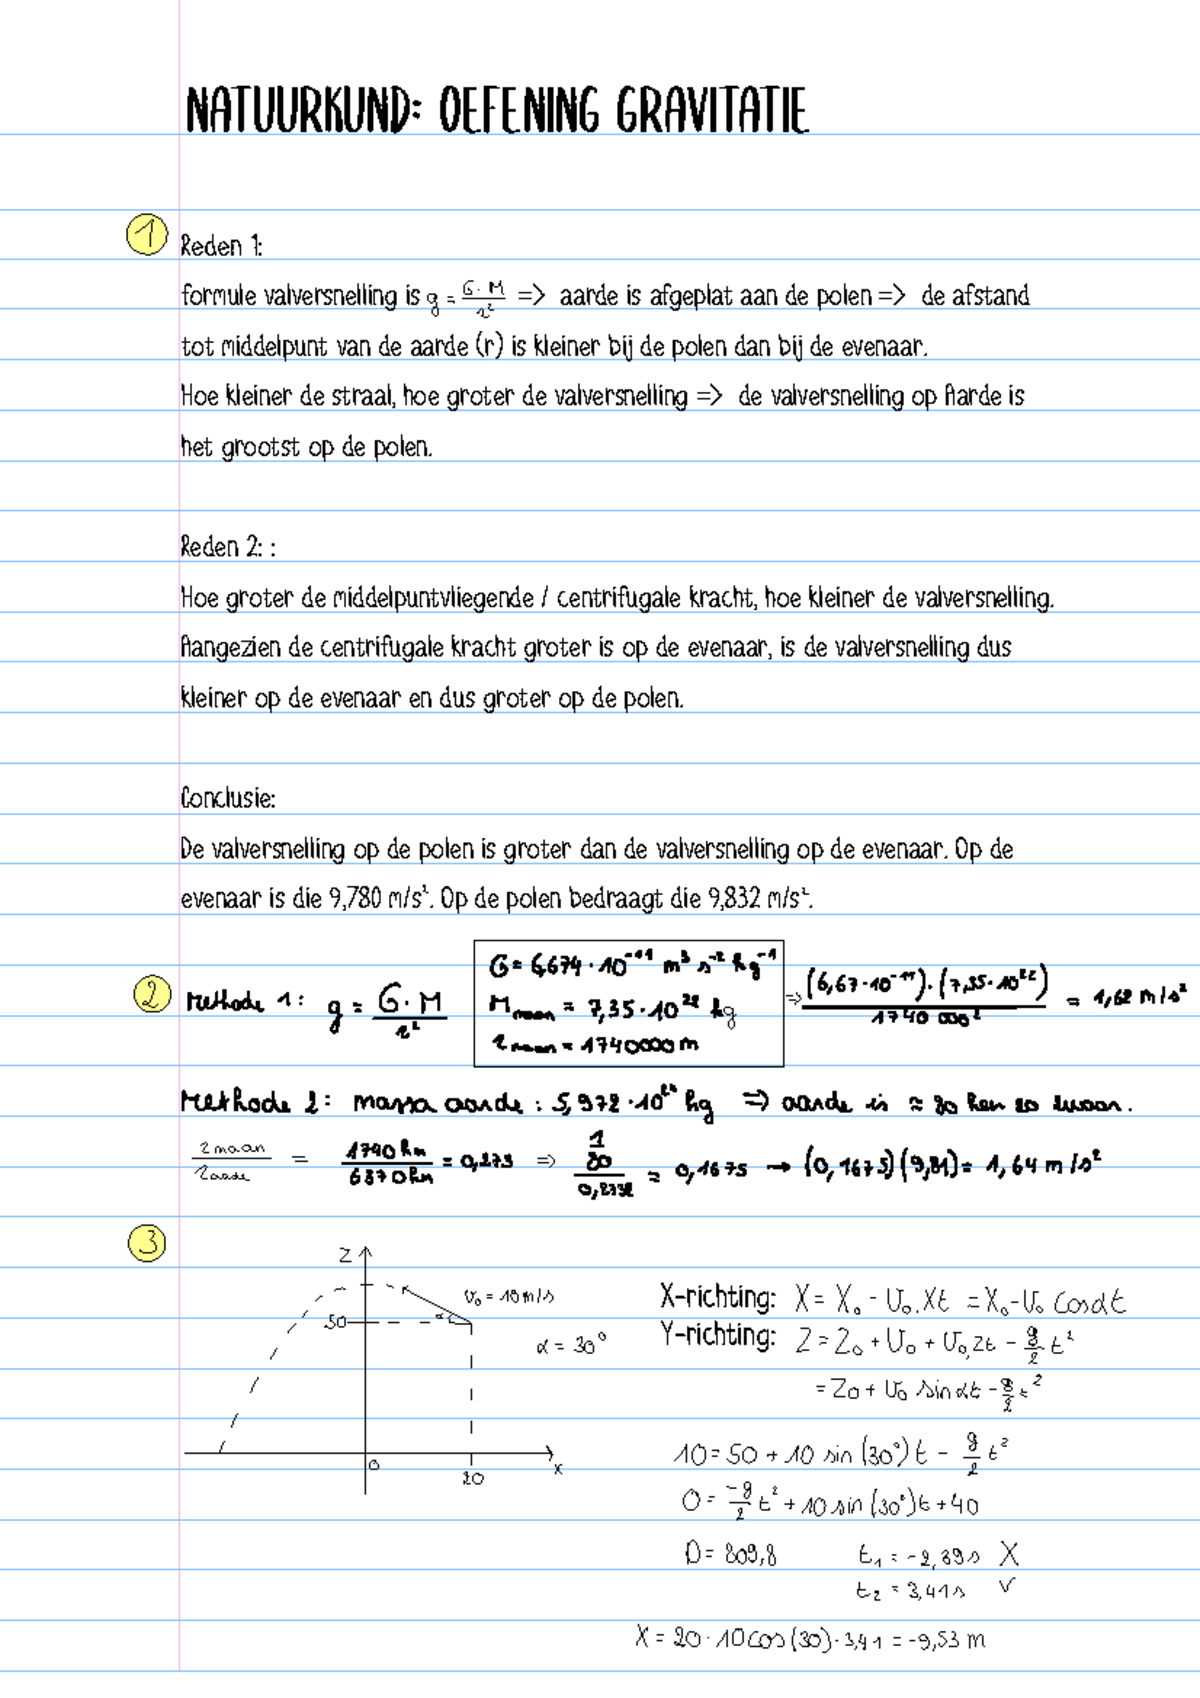 NATUURKUND: OEFENING GRAVITATIE
1 Reden 1:
formule valversnelling is g = G·M / r² => aarde is afgeplat aan de polen => de afstand
tot middelpunt van de aarde (r) is kleiner bij de polen dan bij de evenaar.
Hoe kleiner de straal, hoe groter de valversnelling => de valversnelling op Aarde is
het grootst op de polen.
Reden 2: :
Hoe groter de middelpuntvliegende / centrifugale kracht, hoe kleiner de valversnelling.
Aangezien de centrifugale kracht groter is op de evenaar, is de valversnelling dus
kleiner op de evenaar en dus groter op de polen.
Conclusie:
De valversnelling op de polen is groter dan de valversnelling op de evenaar. Op de
evenaar is die 9,780 m/s². Op de polen bedraagt die 9,832 m/s².
2 Methode 1: g = G·M / r²
G = 6,674·10⁻¹¹ m³ s⁻² kg⁻¹
M maan = 7,35·10²² kg
r maan = 1740000 m
=> (6,67·10⁻¹¹)·(7,35·10²²) / 1740 000² = 1,62 m/s²
Methode 2: massa aarde: 5,972·10²⁴ kg => aarde is ≈ 80 keer zo zwaar.
r maan / r aarde = 1740 km / 6370 km = 0,273 => 1/80 / 0,273² = 0,1675 → (0,1675)(9,81) = 1,64 m/s²
3
Z
v₀ = 10 m/s
50
α
α = 30°
0
20
x
X-richting: X = X₀ - v₀,xt = X₀ - v₀ cosαt
Y-richting: Z = Z₀ + v₀ + v₀,zt - g/2 t²
= Z₀ + v₀ sinαt - g/2 t²
10 = 50 + 10 sin(30°)t - g/2 t²
0 = -g/2 t² + 10 sin(30°)t + 40
D = 809,8 t₁ = -2,39 s X
t₂ = 3,41 s V
X = 20·10cos(30)·3,41 = -9,53 m